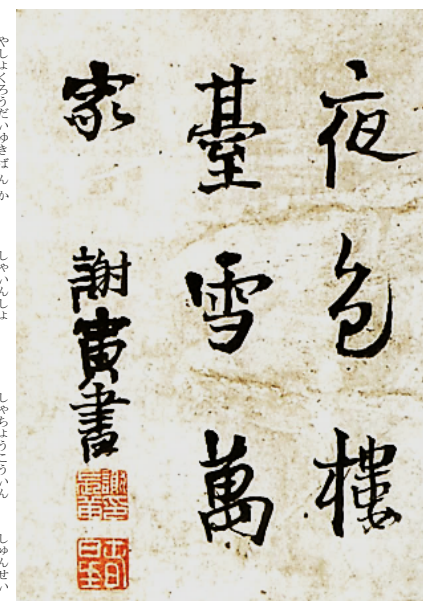 夜色樓
臺雪萬
家
謝寅書
やしょくろうだいゆきばんか
しゃいんしょ
しゃちょうこういん
しゅんせい